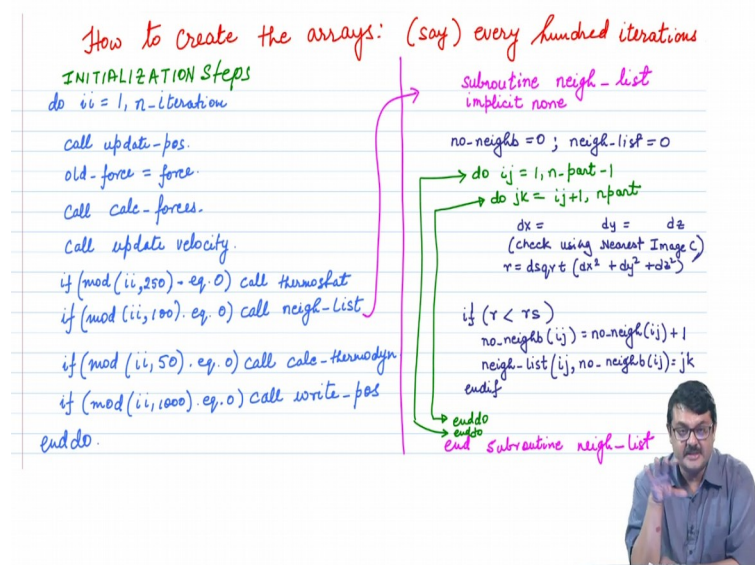 How to create the arrays: (say) every hundred iterations
INITIALIZATION Steps
do ii = 1, n-iteration
call update-pos.
old-force = force.
call calc-forces.
call update velocity.
if (mod (ii,250) . eq. 0) call thermostat
if (mod (ii,100). eq. 0) call neigh-List
if (mod (ii, 50) . eq. 0) call calc-thermodyn
if (mod (ii, 1000) . eq. 0) call write-pos
end do.
subroutine neigh-list
implicit none
no-neighb = 0 ; neigh-list = 0
do ij = 1, n-part -1
do jk = ij+1, npart
dx = dy = dz
(check using Nearest Image C)
r = dsqrt (dx² + dy² + dz²)
if (r < rs)
no-neighb (ij) = no-neigh (ij) + 1
neigh-list (ij, no-neighb (ij) = jk
endif
enddo
enddo
end subroutine neigh-list